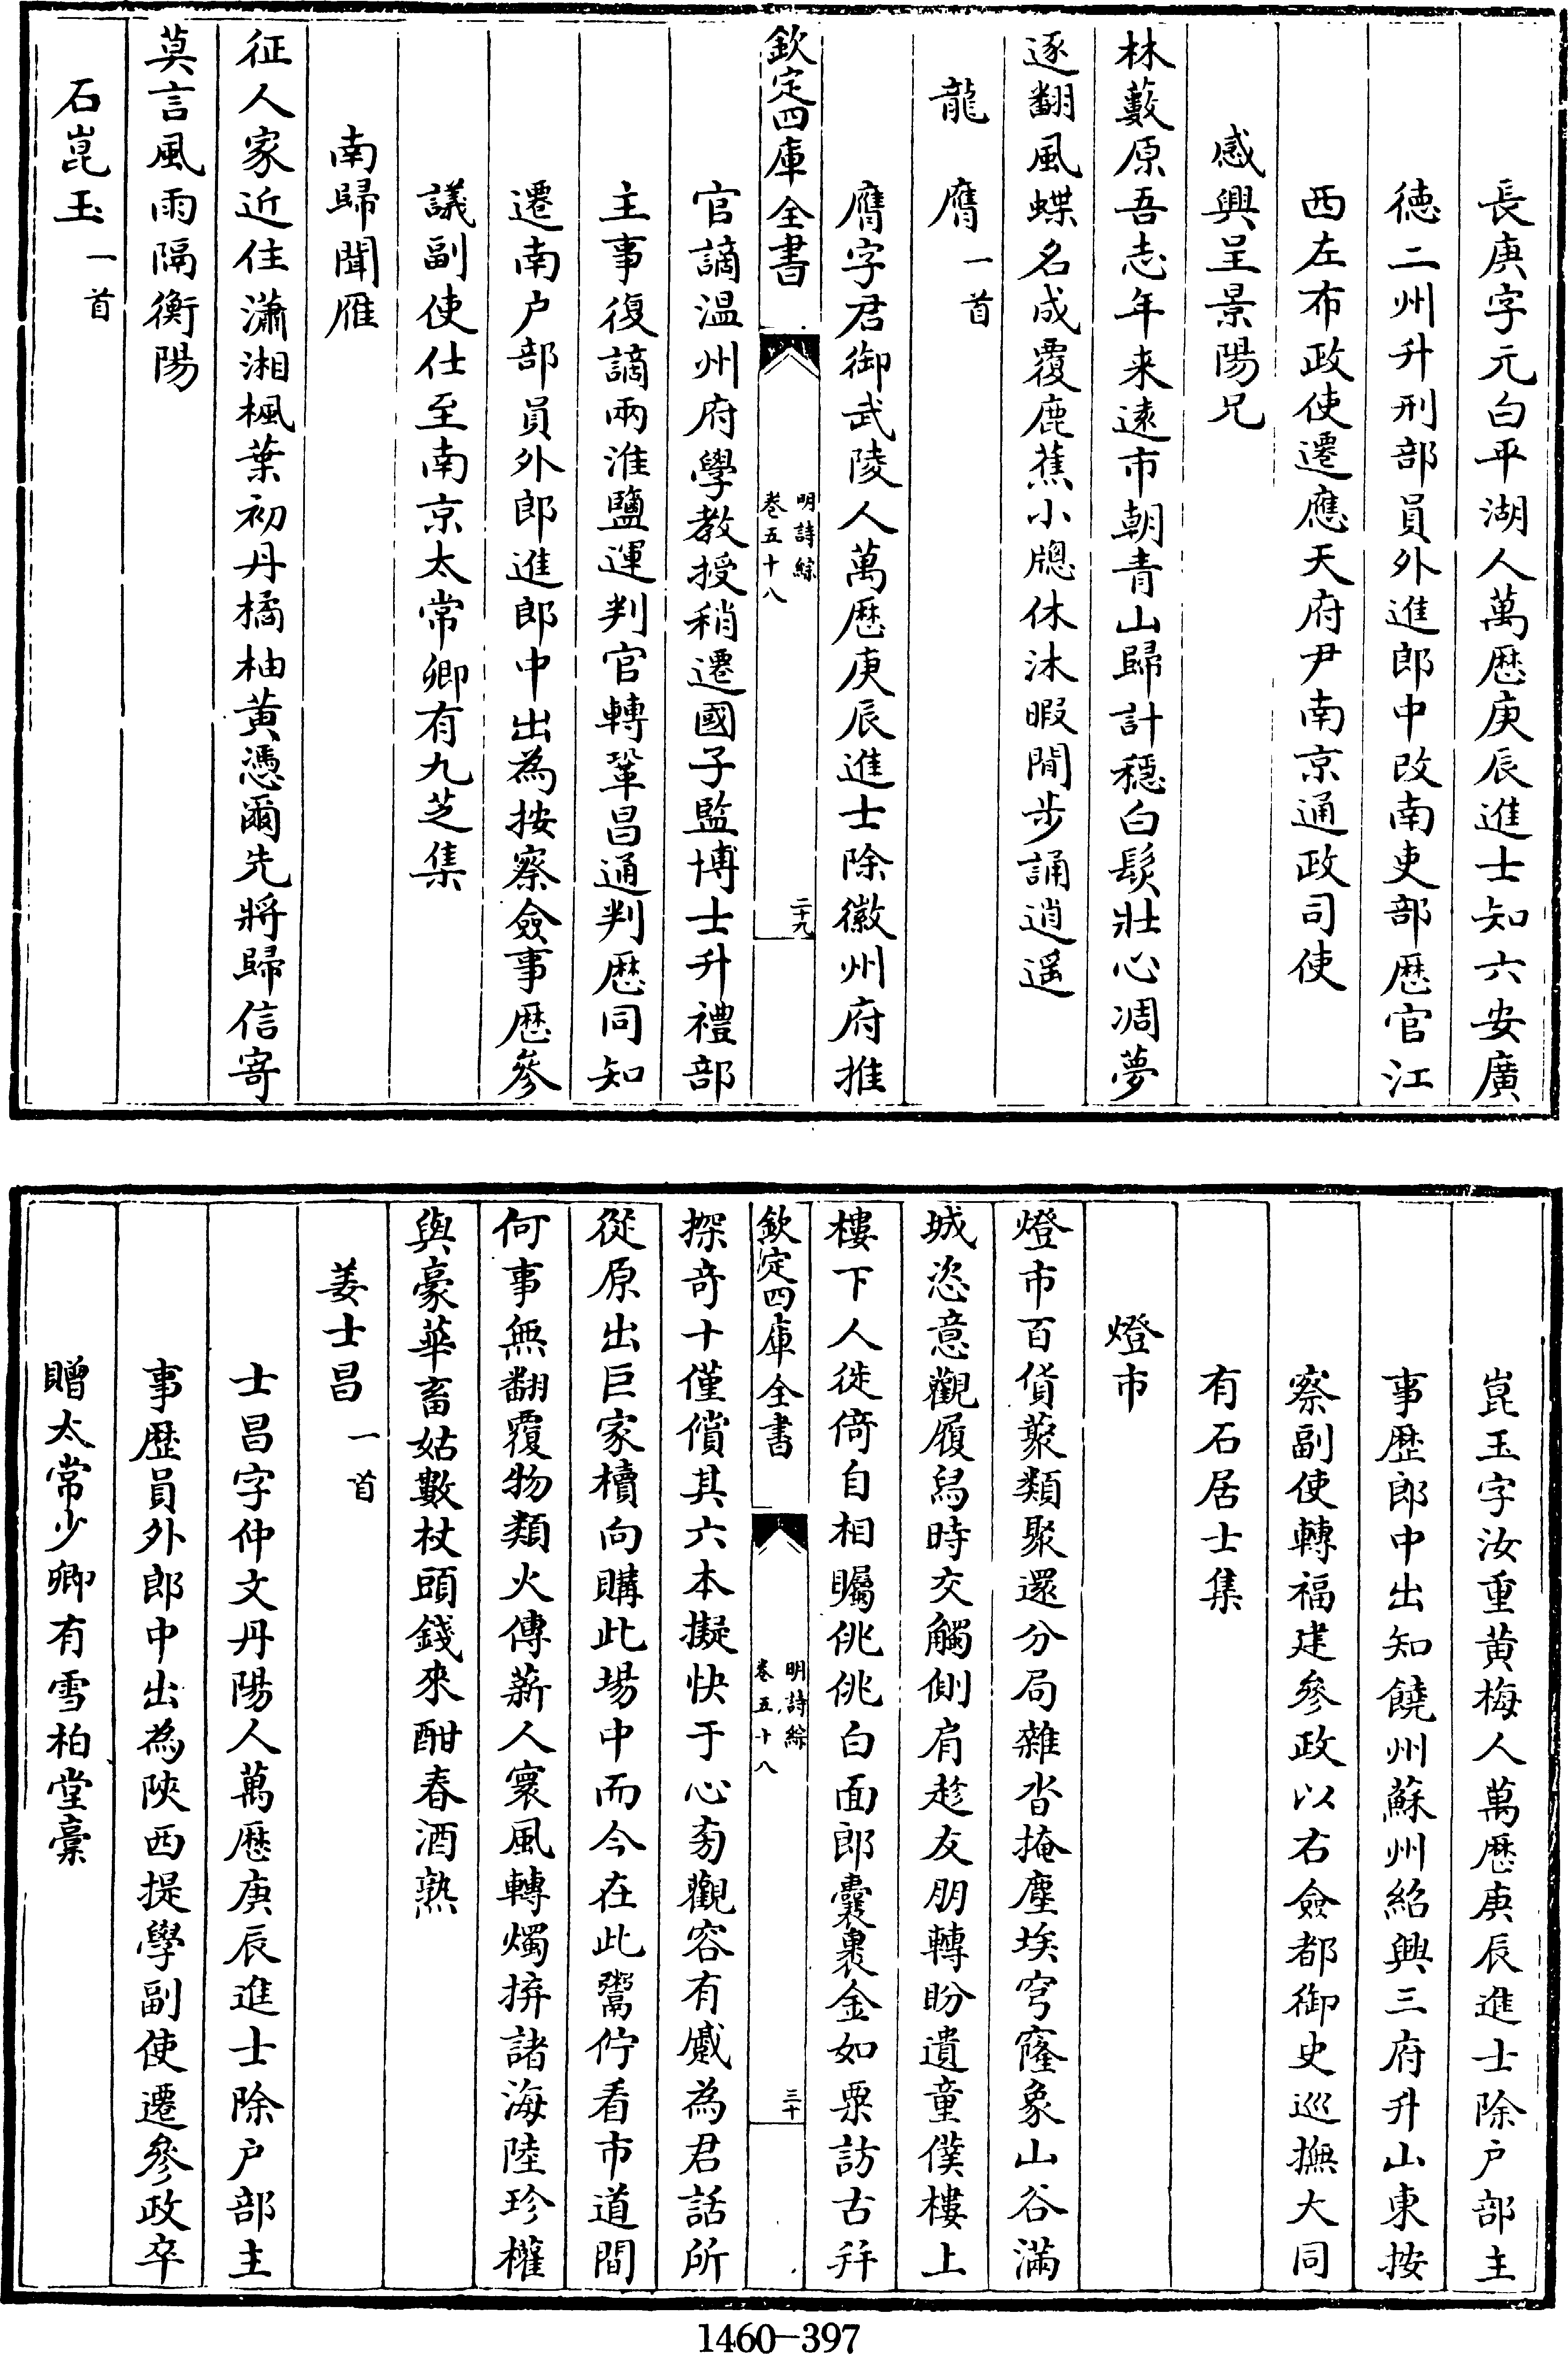 長庚字元白平湖人萬厯庚辰進士知六安廣
徳二州升刑部員外進郎中改南吏部厯官江
西左布政使遷應天府尹南京通政司使
感興呈景陽兄
林藪原吾志年来逺市朝青山歸計穏白髮壯心凋夢
逐翻風蝶名成覆鹿蕉小牕休沐暇閒步誦逍遥
龍膺一首
膺字君御武陵人萬厯庚辰進士除徽州府推
欽定四庫全書
明詩綜
卷五十八
二十九
官謫温州府學教授稍遷國子監博士升禮部
主事復謫兩淮鹽運判官轉鞏昌通判厯同知
遷南户部員外郎進郎中出為按察僉事厯參
議副使仕至南京太常卿有九芝集
南歸聞雁
征人家近住瀟湘楓葉初丹橘柚黄憑爾先將歸信寄
莫言風雨隔衡陽
石崑玉一首
崑玉字汝重黄梅人萬厯庚辰進士除户部主
事厯郎中出知饒州蘇州紹興三府升山東按
察副使轉福建參政以右僉都御史巡撫大同
有石居士集
燈市
燈市百貨蘂類聚還分局雜沓掩塵埃穹窿象山谷滿
城恣意觀履舄時交觸側肩趁友朋轉盼遺童僕樓上
樓下人徙倚自相矚佻佻白面郎囊裹金如粟訪古并
欽定四庫全書
明詩綜
卷五十八
三十
探奇十僅償其六本擬快于心匆觀容有慼為君話所
從原出巨家櫝向購此塲中而今在此鬻佇看市道間
何事無翻覆物類火傳薪人寰風轉燭擠諸海陸珍榷
與豪華畜姑數杖頭錢來酣春酒熟
姜士昌一首
士昌字仲文丹陽人萬厯庚辰進士除户部主
事厯員外郎中出為陜西提學副使遷參政卒
贈太常少卿有雪柏堂稾
1460-397